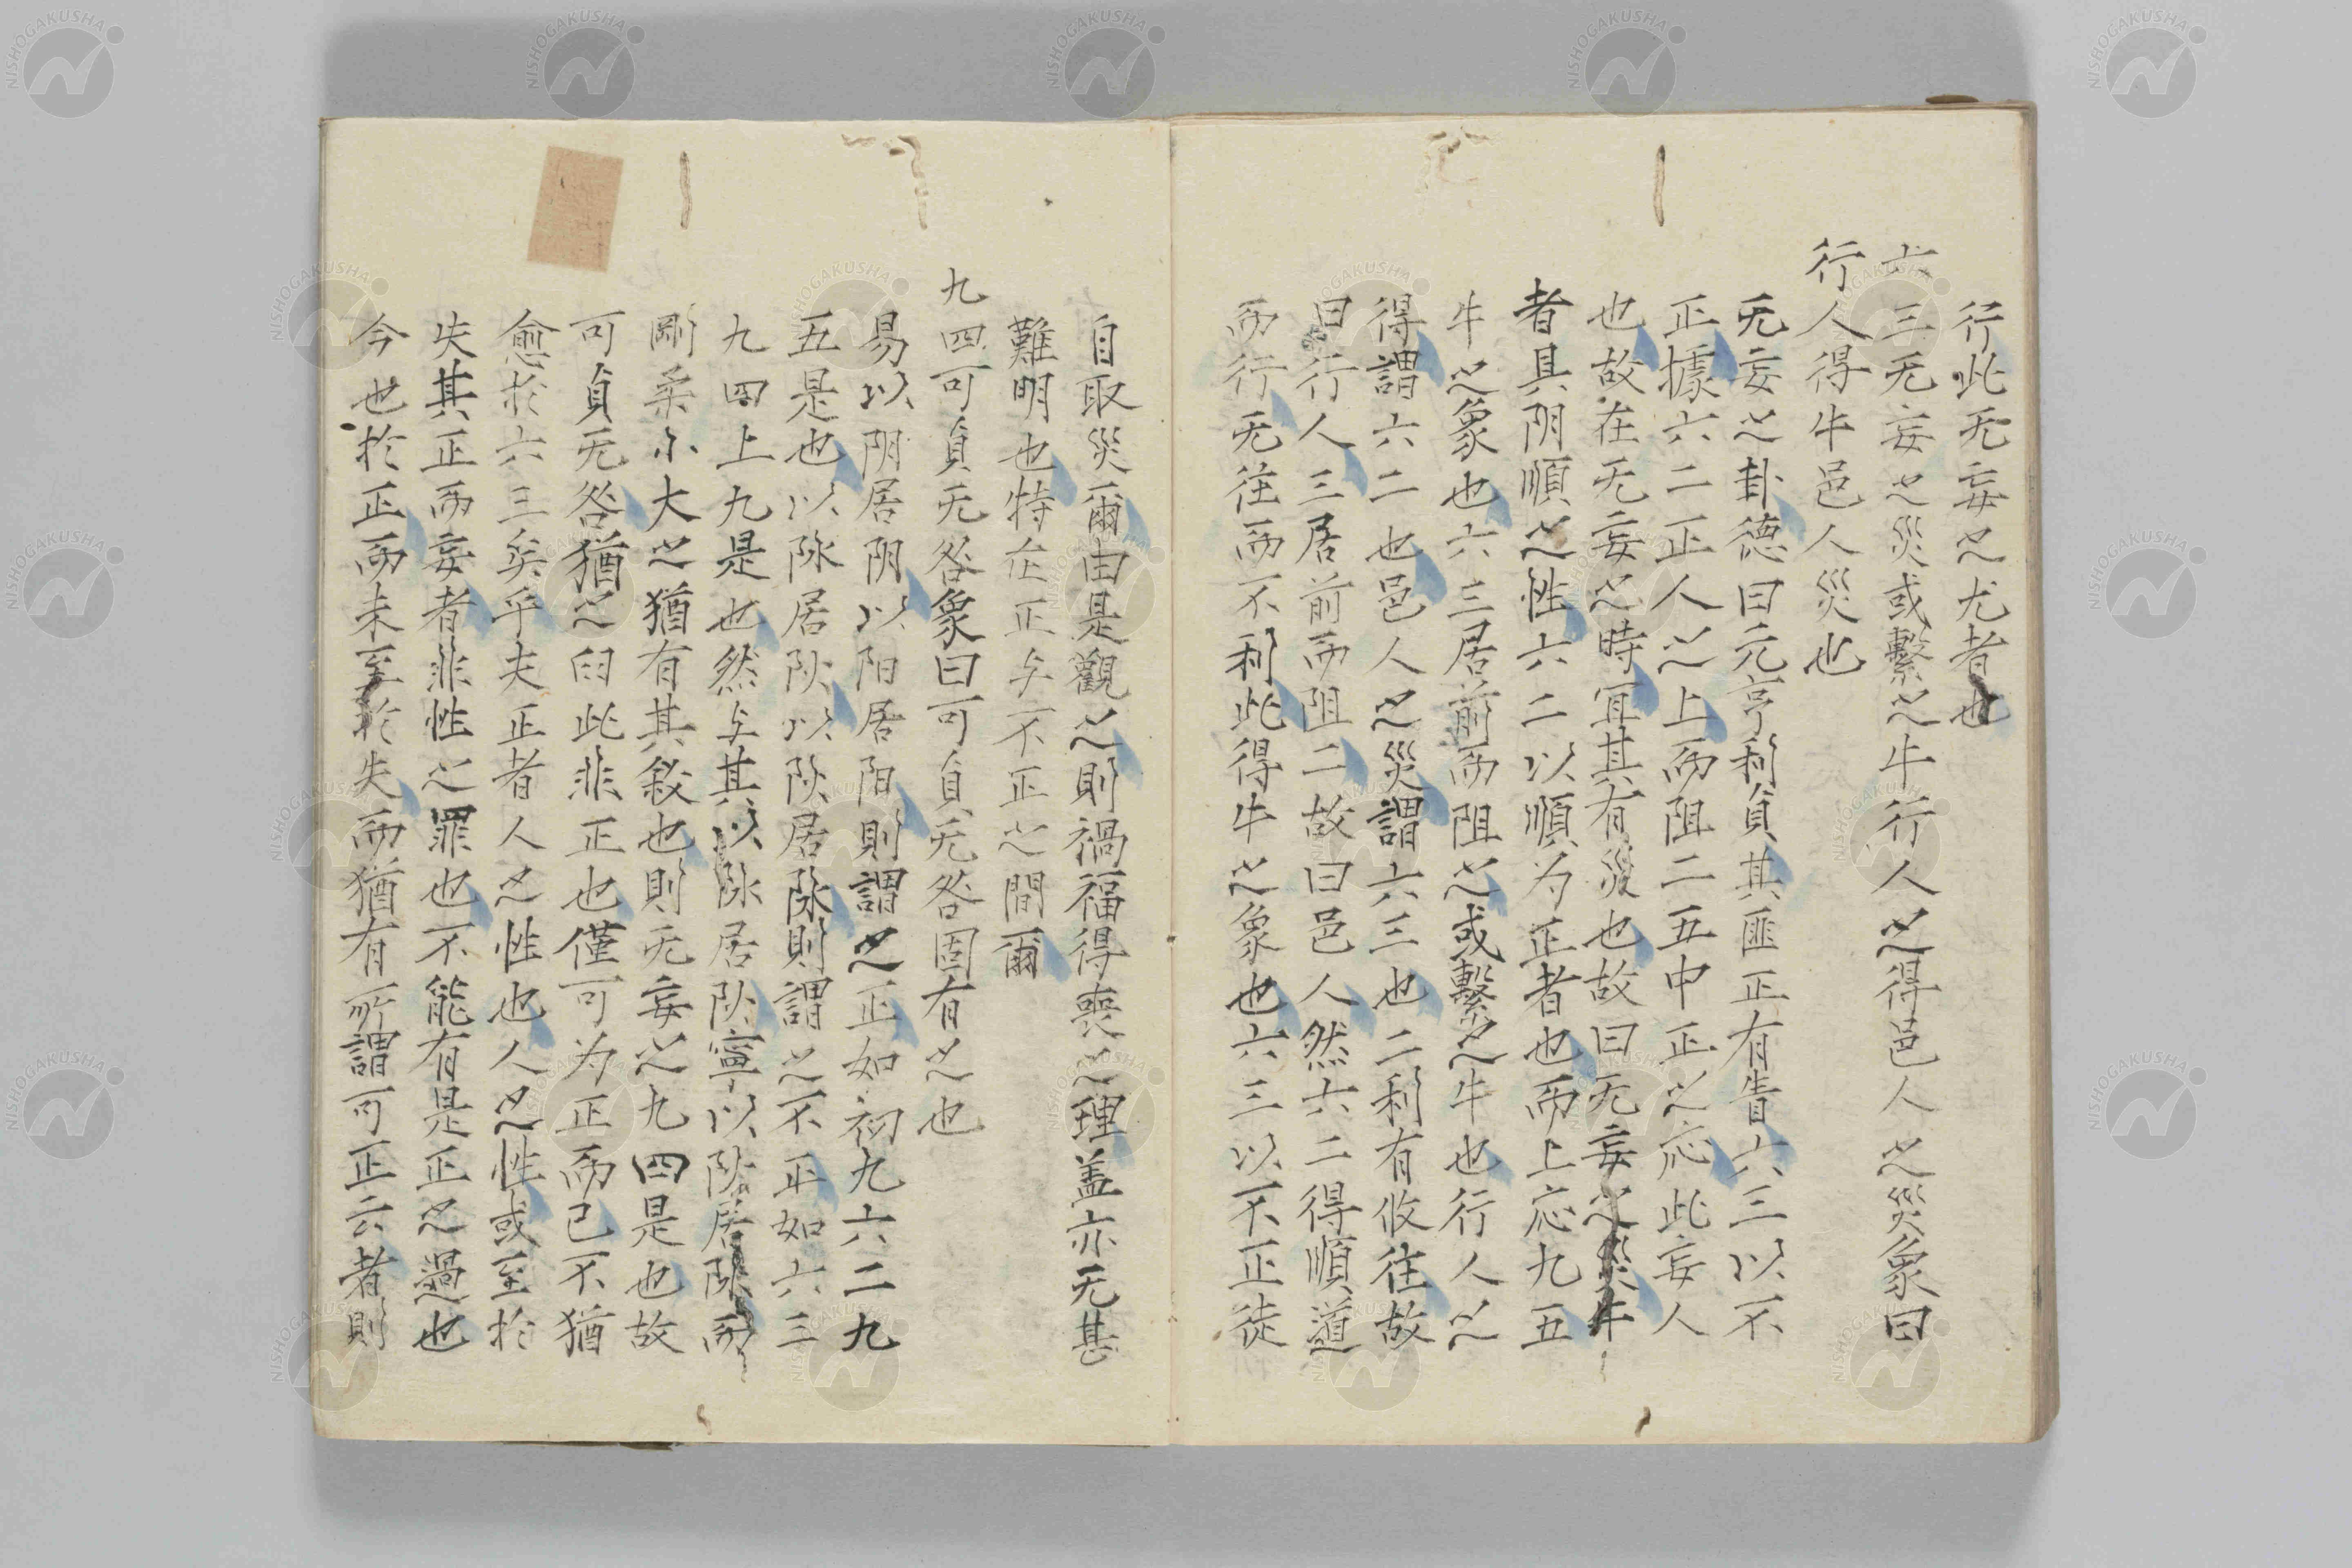 行此无妄之尤者也
六三无妄之災或繫之牛行人之得邑人之災象曰
行人得牛邑人災也
无妄之卦德曰元亨利貞其匪正有眚六三以不
正據六二正人之上而阻二五中正之応此妄人
也故在无妄之時宜其有災也故曰无妄之災牛
者具阴順之性六二以順为正者也而上応九五
牛之象也六三居前而阻之或繫之牛也行人之
得謂六二也邑人之災謂六三也二利有攸往故
曰行人三居前而阻二故曰邑人然六二得順道
而行无往而不利此得牛之象也六三以不正徒
自取災爾由是觀之則禍福得喪之理盖亦无甚
難明也特在正与不正之間爾
九四可貞无咎象曰可貞无咎固有之也
易以阴居阴以阳居阳則謂之正如初九六二九
五是也以阴居阳以阳居阴則謂之不正如六三
九四上九是也然与其以阴居阳寧以阳居阴而
剛柔小大之猶有其敘也則无妄之九四是也故
可貞无咎猶之曰此非正也僅可为正而已不猶
愈於六三矣乎夫正者人之性也人之性或至於
失其正而妄者非性之罪也不能有是正之過也
今也於正而未至於失而猶有所謂可正云者則
NISHOGAKUSHA